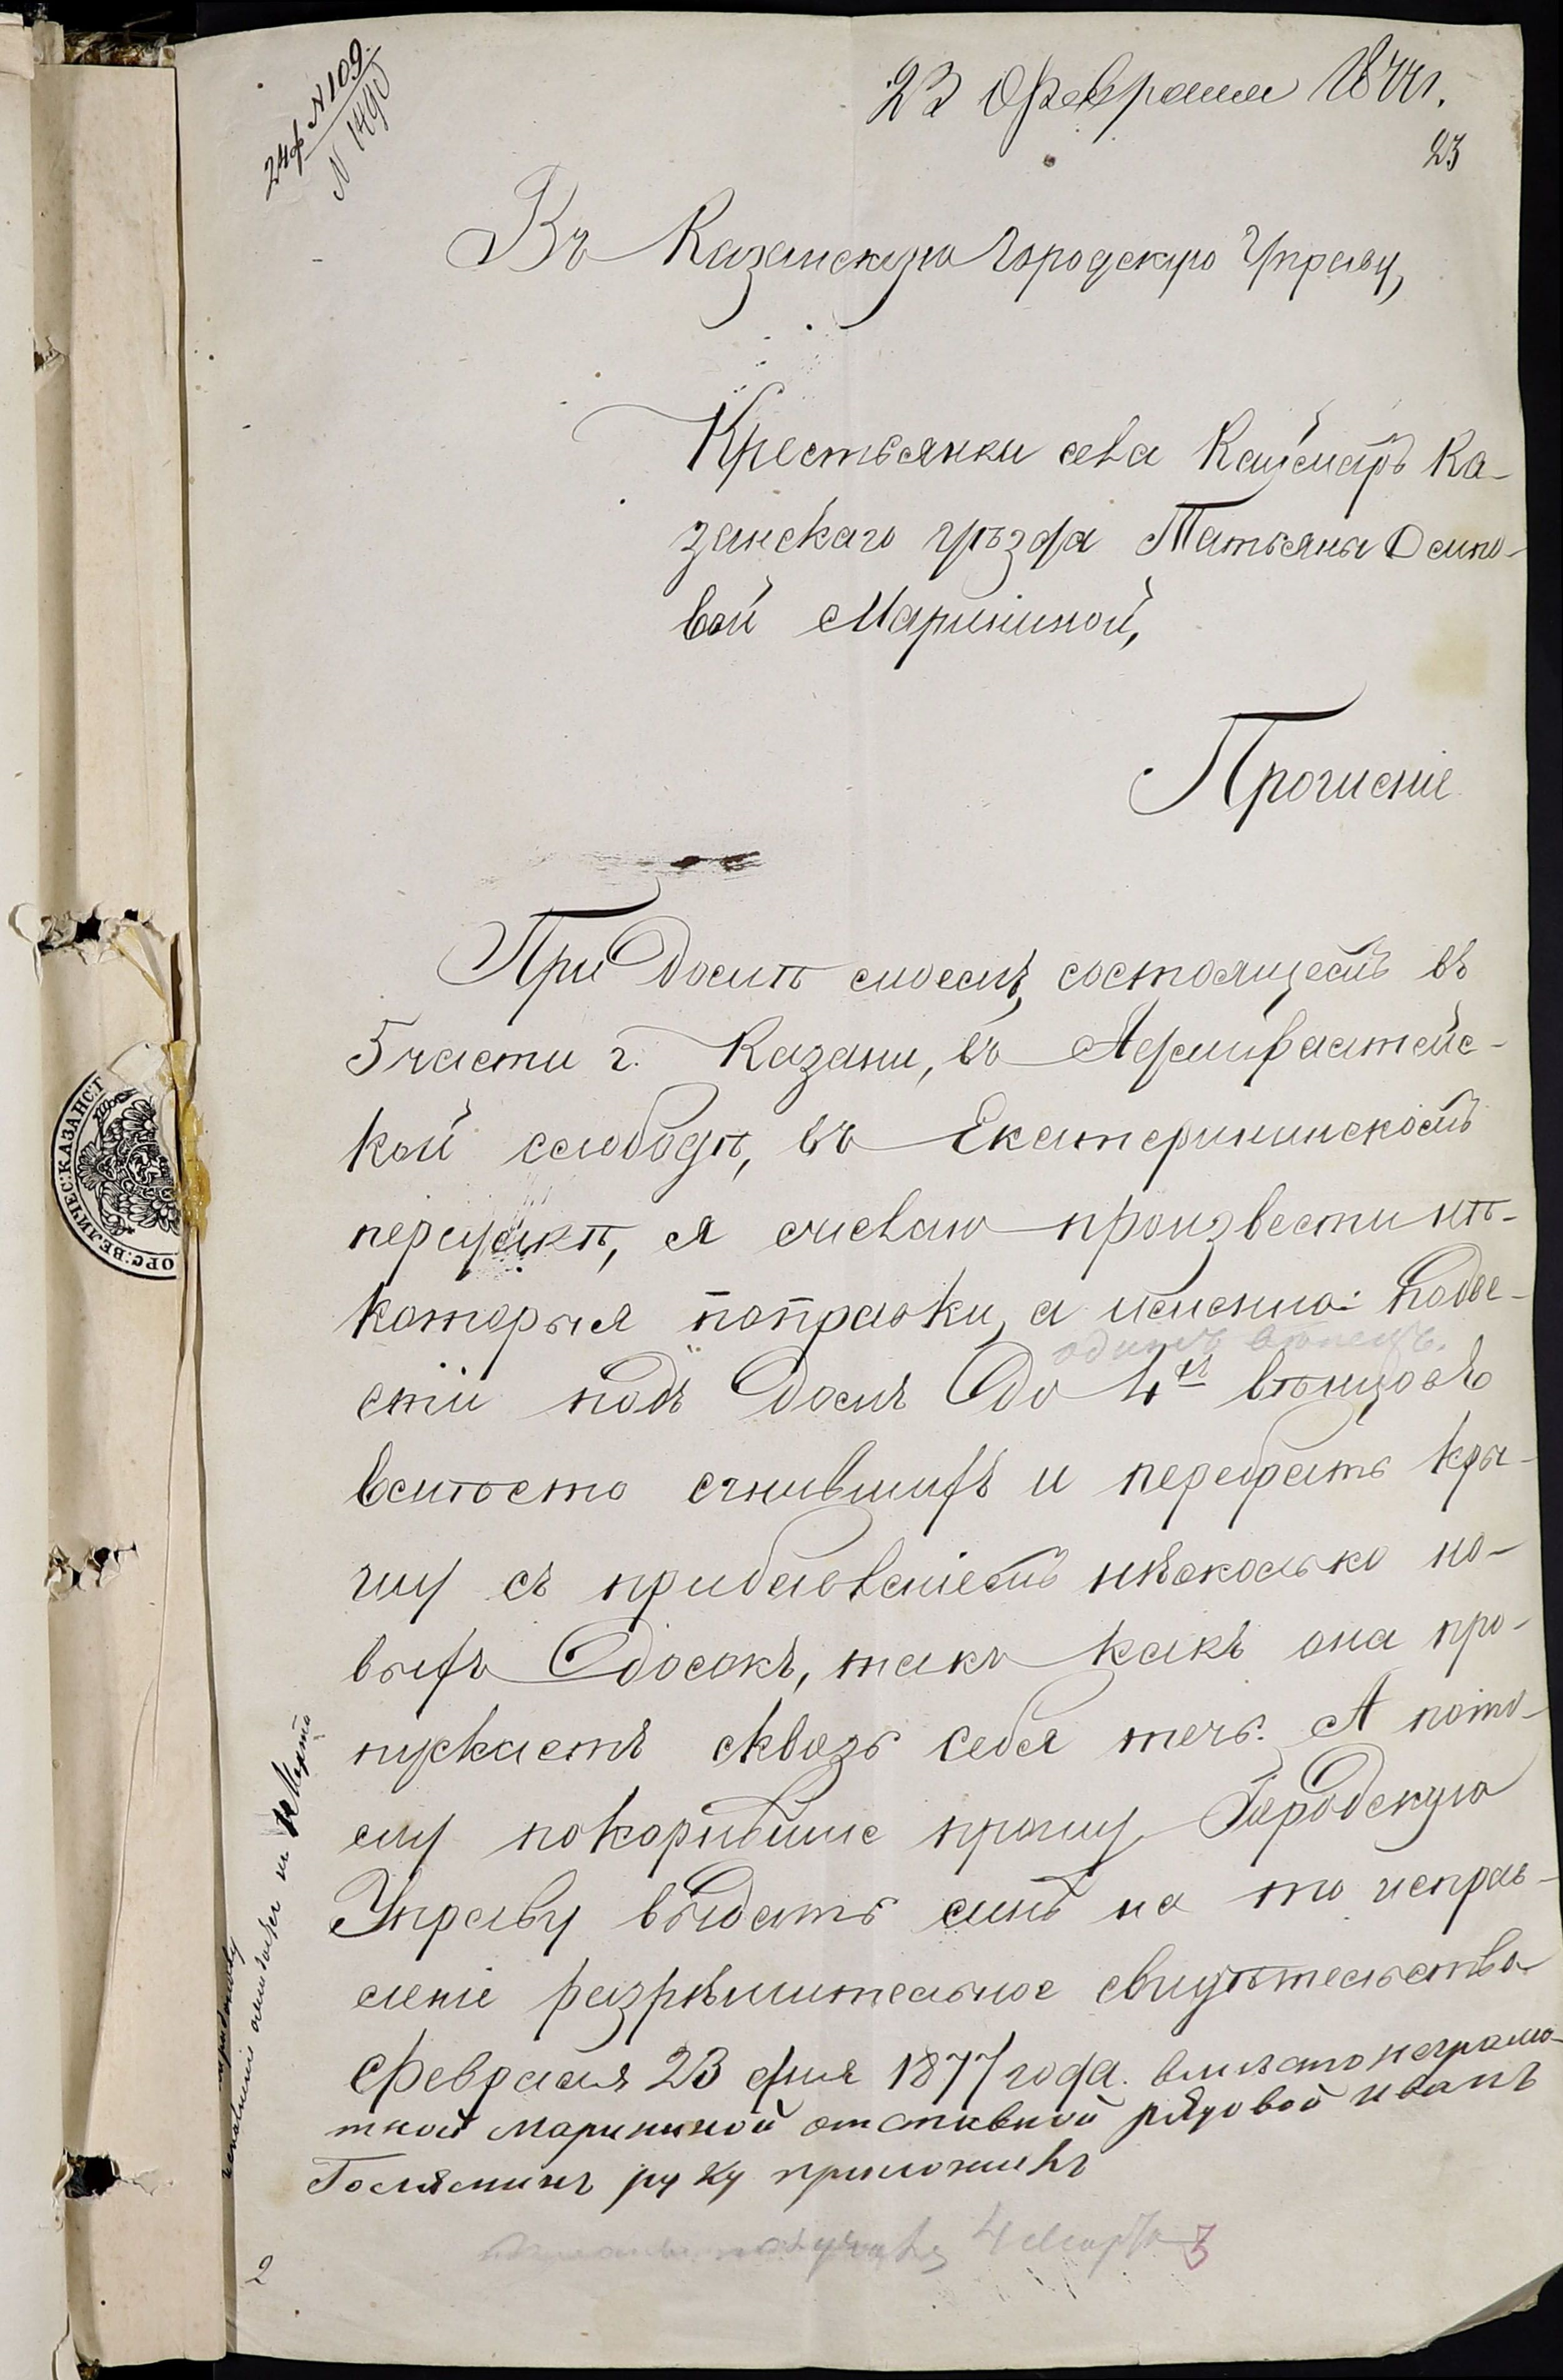 24ф N 109.
N 1490
23 Февраля 1877 г.
23
Въ Казанскую Городскую Управу,
Крестьянки села Каймаръ Ка-
занскаго уѣзда Татьяны Осипо-
вой Марининой,
Прошеніе
При домѣ моемъ, состоящемъ въ
5 части г. Казани, въ Адмиралтейс-
кой слободѣ, въ Екатерининскомъ
переулкѣ, я желаю произвести нѣ-
которыя поправки, а именно: подве-
одинъ вѣнецъ.
сти подъ домъ до 4хъ вѣнцовъ
вмѣсто сгнившихъ и перебрать кры-
шу съ прибавленіемъ нѣсколько но-
выхъ досокъ, такъ какъ она про-
пускаетъ сквозь себя течь. А пото-
му покорнѣйше прошу Городскую
Управу выдать мнѣ на то исправ-
леніе разрѣшительное свидѣтельство
Февраля 23 дня 1877 года. вместо неграмо-
тной Марининой отставной рядовой иванъ
руку приложилъ
4 Марта
3
на Марта
2
ОРС: ВЕЛИЧЕС: КАЗАНСТ